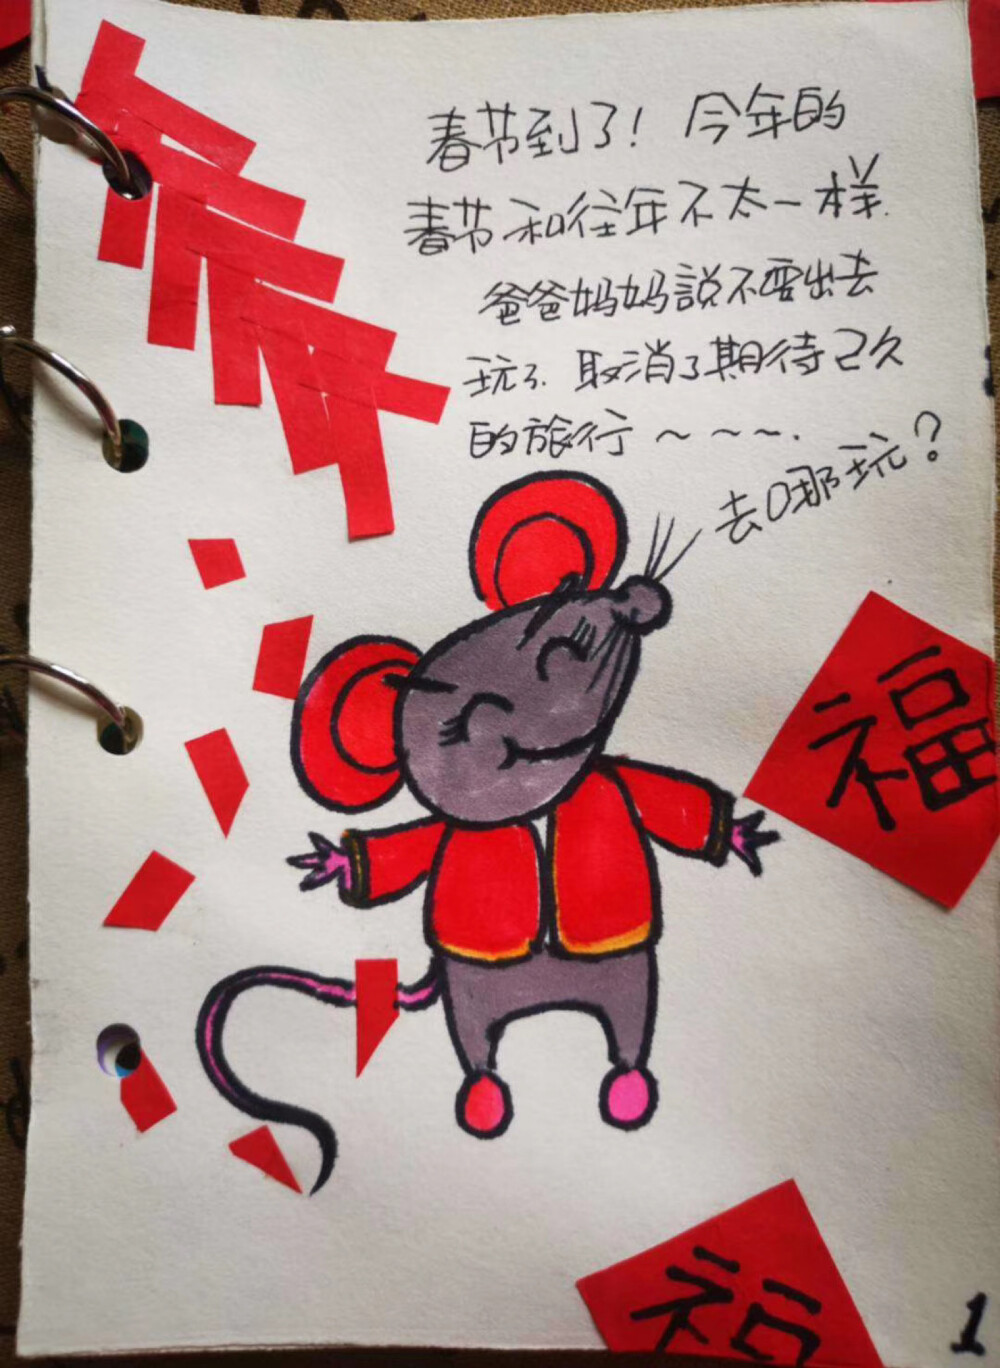 春节到了！今年的
春节和往年不太一样.
爸爸妈妈説不要出去
玩了.取消了期待已久
的旅行～～～.
去哪玩？
福
福
1